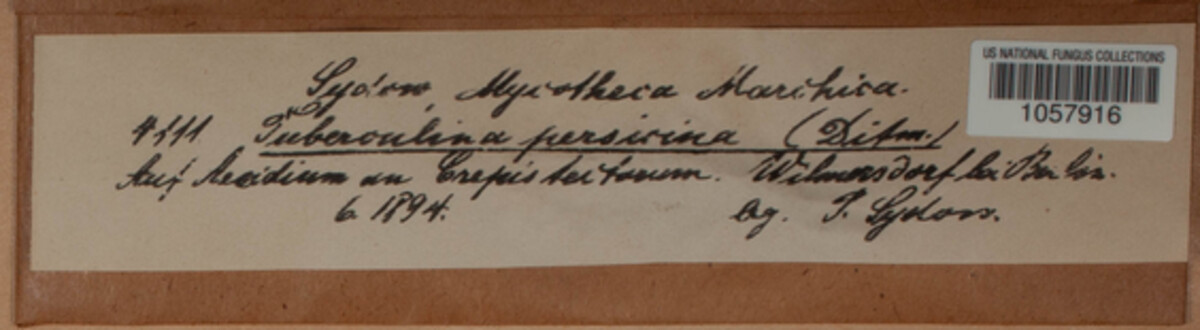 Sydow, Mycotheca Marchica.
US NATIONAL FUNGUS COLLECTIONS
1057916
Tuberculina persicina (Ditm.)
Auf Aecidium an Crepis tectorum. Wilmersdorf bei Berlin.
6. 1894. leg. P. Sydow.